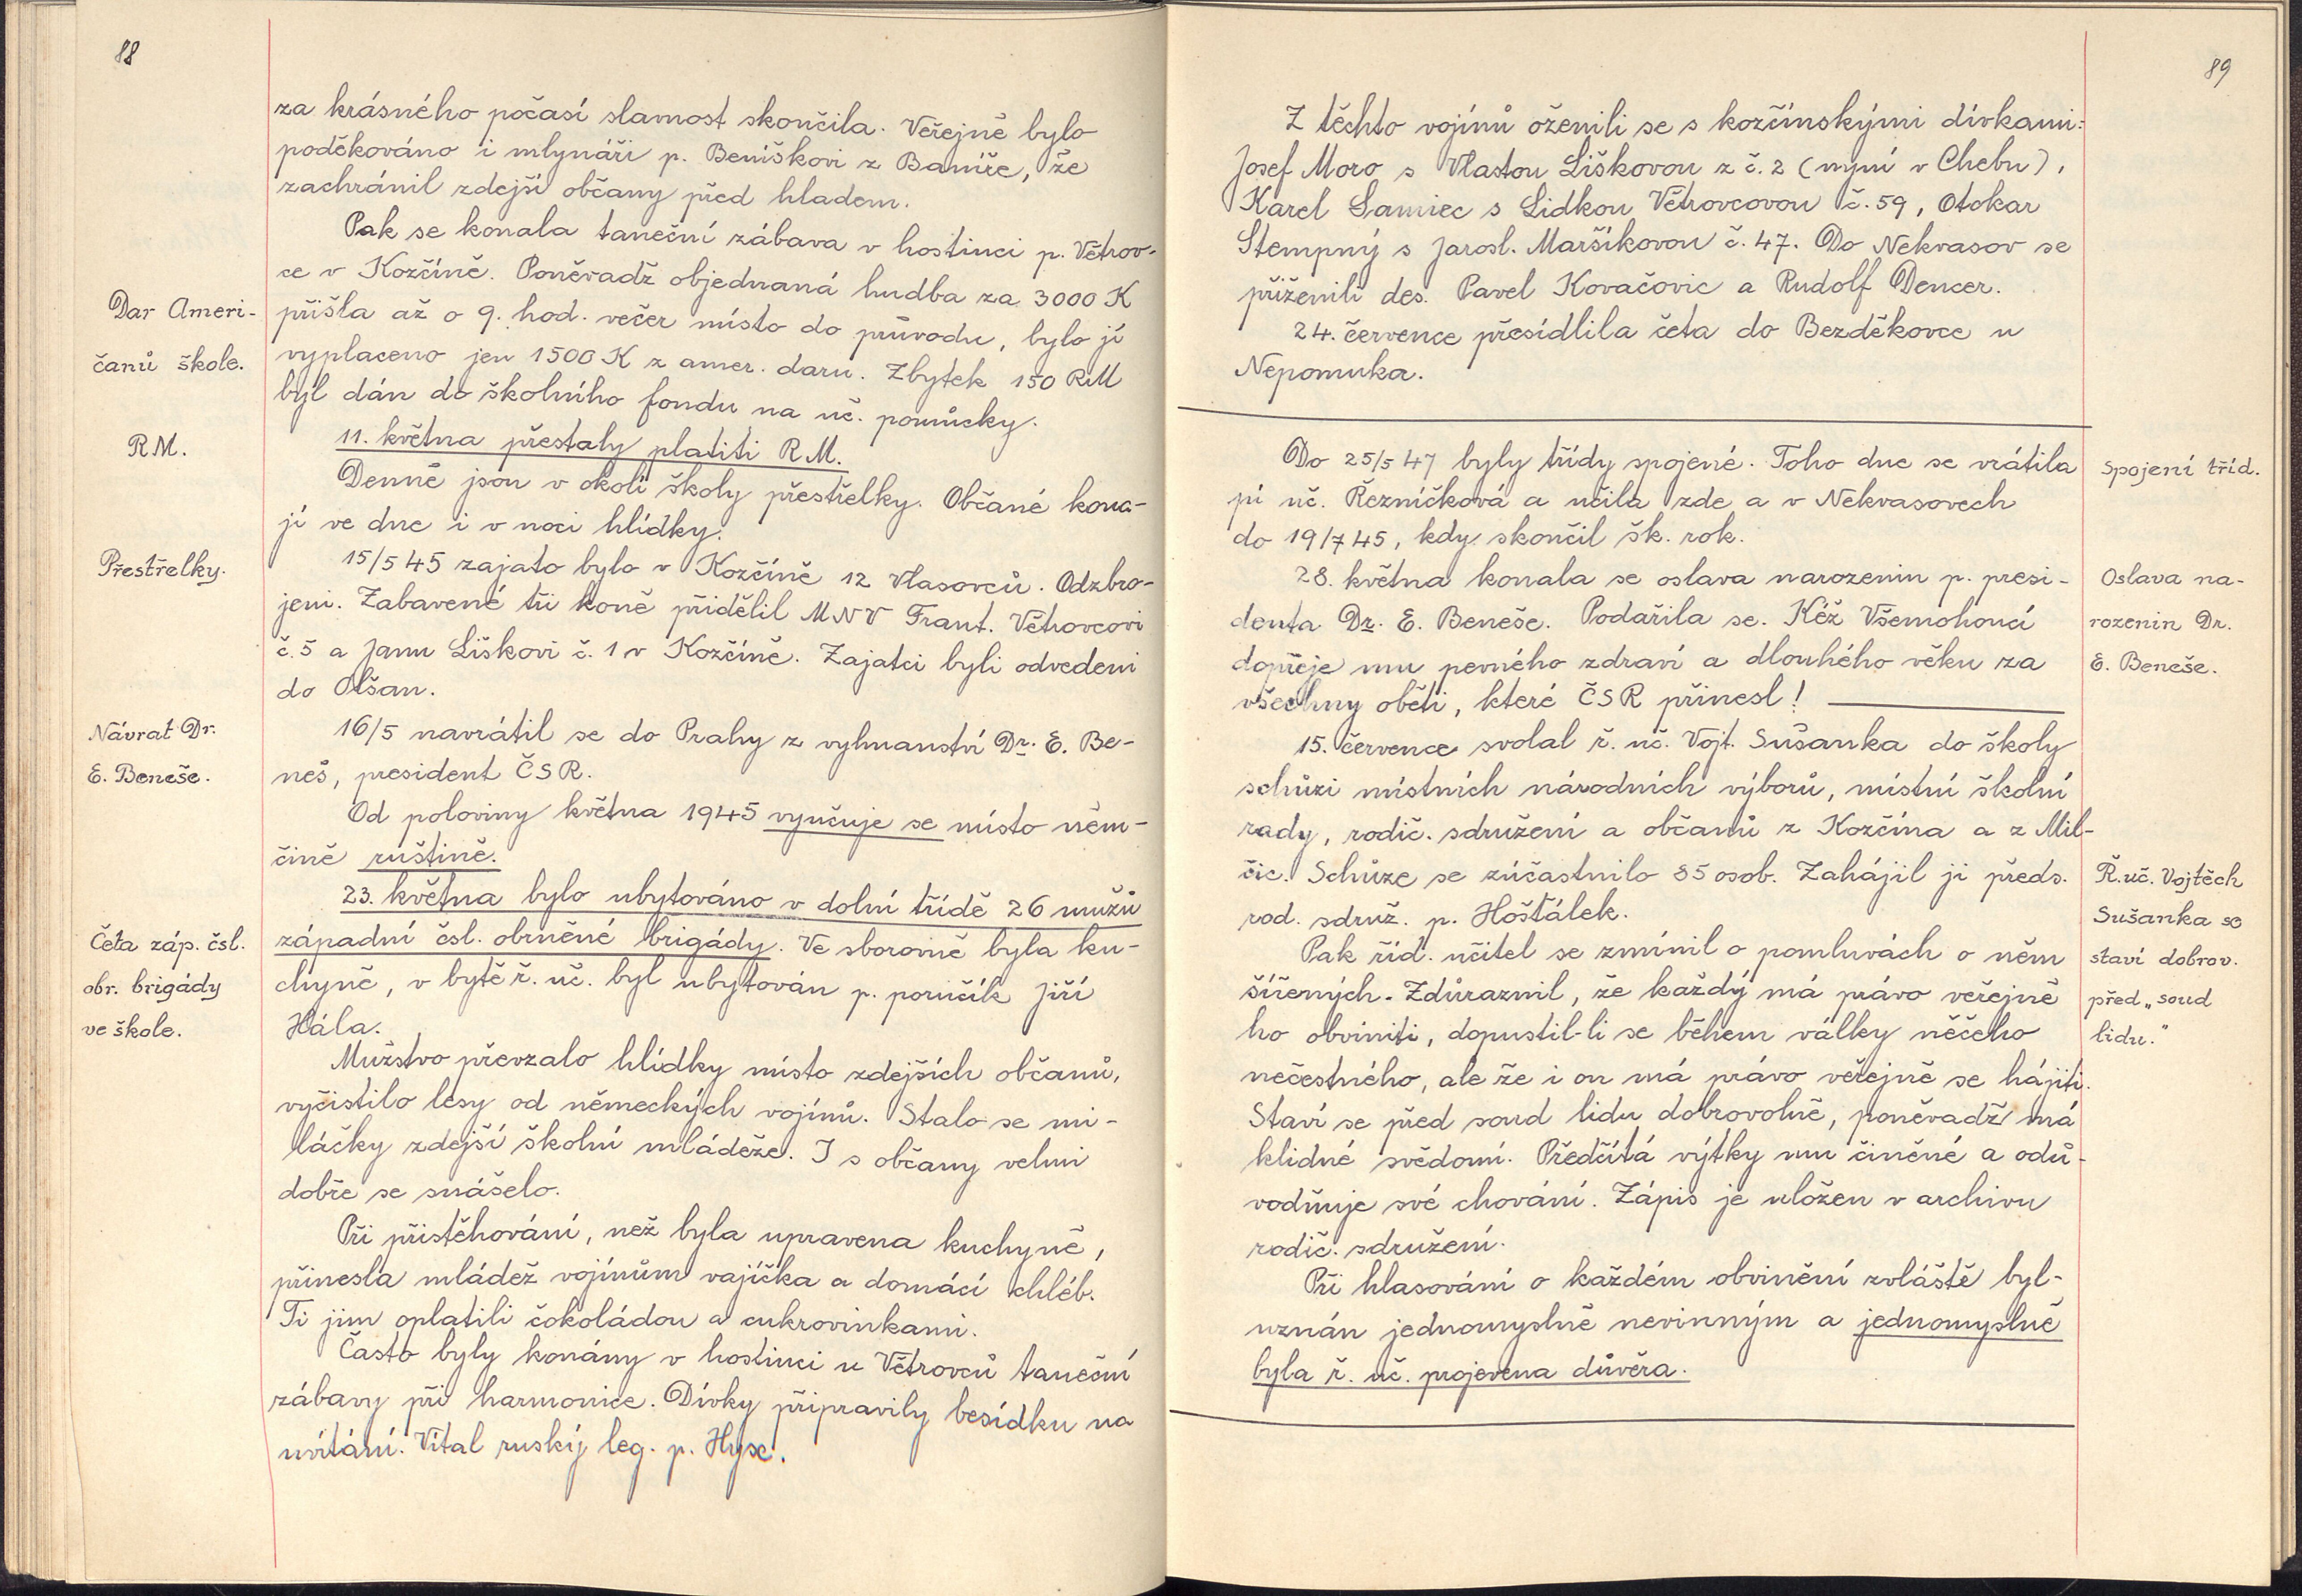 88
za krásného počasí slavnost skončila. Veřejně bylo
poděkováno i mlynáři p. Beníškovi z Bamíře, že
zachránil zdejší občany před hladem.
Pak se konala taneční zábava v hostinci p. Větrov-
ce v Kozčíně. Poněvadž objednaná hudba za 3000 K
Dar Ameri-
přišla až o 9. hod. večer místo do průvodu, bylo jí
čanů škole.
vyplaceno jen 1500 K z amer. daru. Zbytek 150 RM
byl dán do školního fondu na uč. pomůcky.
RM.
11. května přestaly platiti RM.
Denně jsou v okolí školy přestřelky. Občané kona-
jí ve dne i v noci hlídky.
Přestřelky.
15/5 45 zajato bylo v Kozčíně 12 Vlasovců. Odzbro-
jeni. Zabavené tři koně přidělil MNV Frant. Větrovcovi
č. 5 a Janu Liškovi č. 1 v Kozčíně. Zajatci byli odvedeni
do Olšan.
Návrat Dr.
16/5 navrátil se do Prahy z vyhnanství Dr. E. Be-
E. Beneše.
neš, president ČSR.
Od poloviny května 1945 vyučuje se místo něm-
čině ruštině.
23. května bylo ubytováno v dolní třídě 26 mužů
Četa záp. čsl.
západní čsl. obrněné brigády. Ve sborovně byla ku-
obr. brigády
chyně, v bytě ř. uč. byl ubytován p. poručík Jiří
ve škole.
Hála.
Mužstvo převzalo hlídky místo zdejších občanů,
vyčistilo lesy od německých vojínů. Stalo se mi-
láčky zdejší školní mládeže. I s občany velmi
dobře se snášelo.
Při přistěhování, než byla upravena kuchyně,
přinesla mládež vojínům vajíčka a domácí chléb.
Ti jim oplatili čokoládou a cukrovinkami.
Často byly konány v hostinci u Větrovců taneční
zábavy při harmonice. Dívky připravily besídku na
uvítání. Vítal ruský leg. p. Hyse.
89
Z těchto vojínů oženili se s kozčínskými dívkami:
Josef Moro s Vlastou Liškovou z č. 2 (nyní v Chebu),
Karel Samiec s Lidkou Větrovcovou č. 59, Otokar
Stempný s Jarosl. Maršíkovou č. 47. Do Nekvasov se
přiženili des. Pavel Kovačovic a Rudolf Dencer.
24. července přesídlila četa do Bezděkovce u
Nepomuka.
Do 25/5 47 byly třídy spojené. Toho dne se vrátila
Spojení tříd.
pí uč. Řezníčková a učila zde a v Nekvasovech
do 19/7 45, kdy skončil šk. rok.
28. května konala se oslava narozenin p. presi-
Oslava na-
denta Dr. E. Beneše. Podařila se. Kéž Všemohoucí
rozenin Dr.
dopřeje mu pevného zdraví a dlouhého věku za
E. Beneše.
všechny oběti, které ČSR přinesl!
15. července svolal ř. uč. Vojt. Sušanka do školy
schůzi místních národních výborů, místní školní
rady, rodič. sdružení a občanů z Kozčína a z Mil-
čic. Schůze se zúčastnilo 35 osob. Zahájil ji předs.
Ř. uč. Vojtěch
rod. sdruž. p. Hošťálek.
Sušanka se
Pak říd. učitel se zmínil o pomluvách o něm
staví dobrov.
šířených. Zdůraznil, že každý má právo veřejně
před „soud
ho obviniti, dopustil-li se během války něčeho
lidu."
nečestného, ale že i on má právo veřejně se hájiti.
Staví se před soud lidu dobrovolně, poněvadž má
klidné svědomí. Předčítá výtky mu činěné a odů-
vodňuje své chování. Zápis je uložen v archivu
rodič. sdružení.
Při hlasování o každém obvinění zvláště byl
uznán jednomyslně nevinným a jednomyslně
byla ř. uč. projevena důvěra.